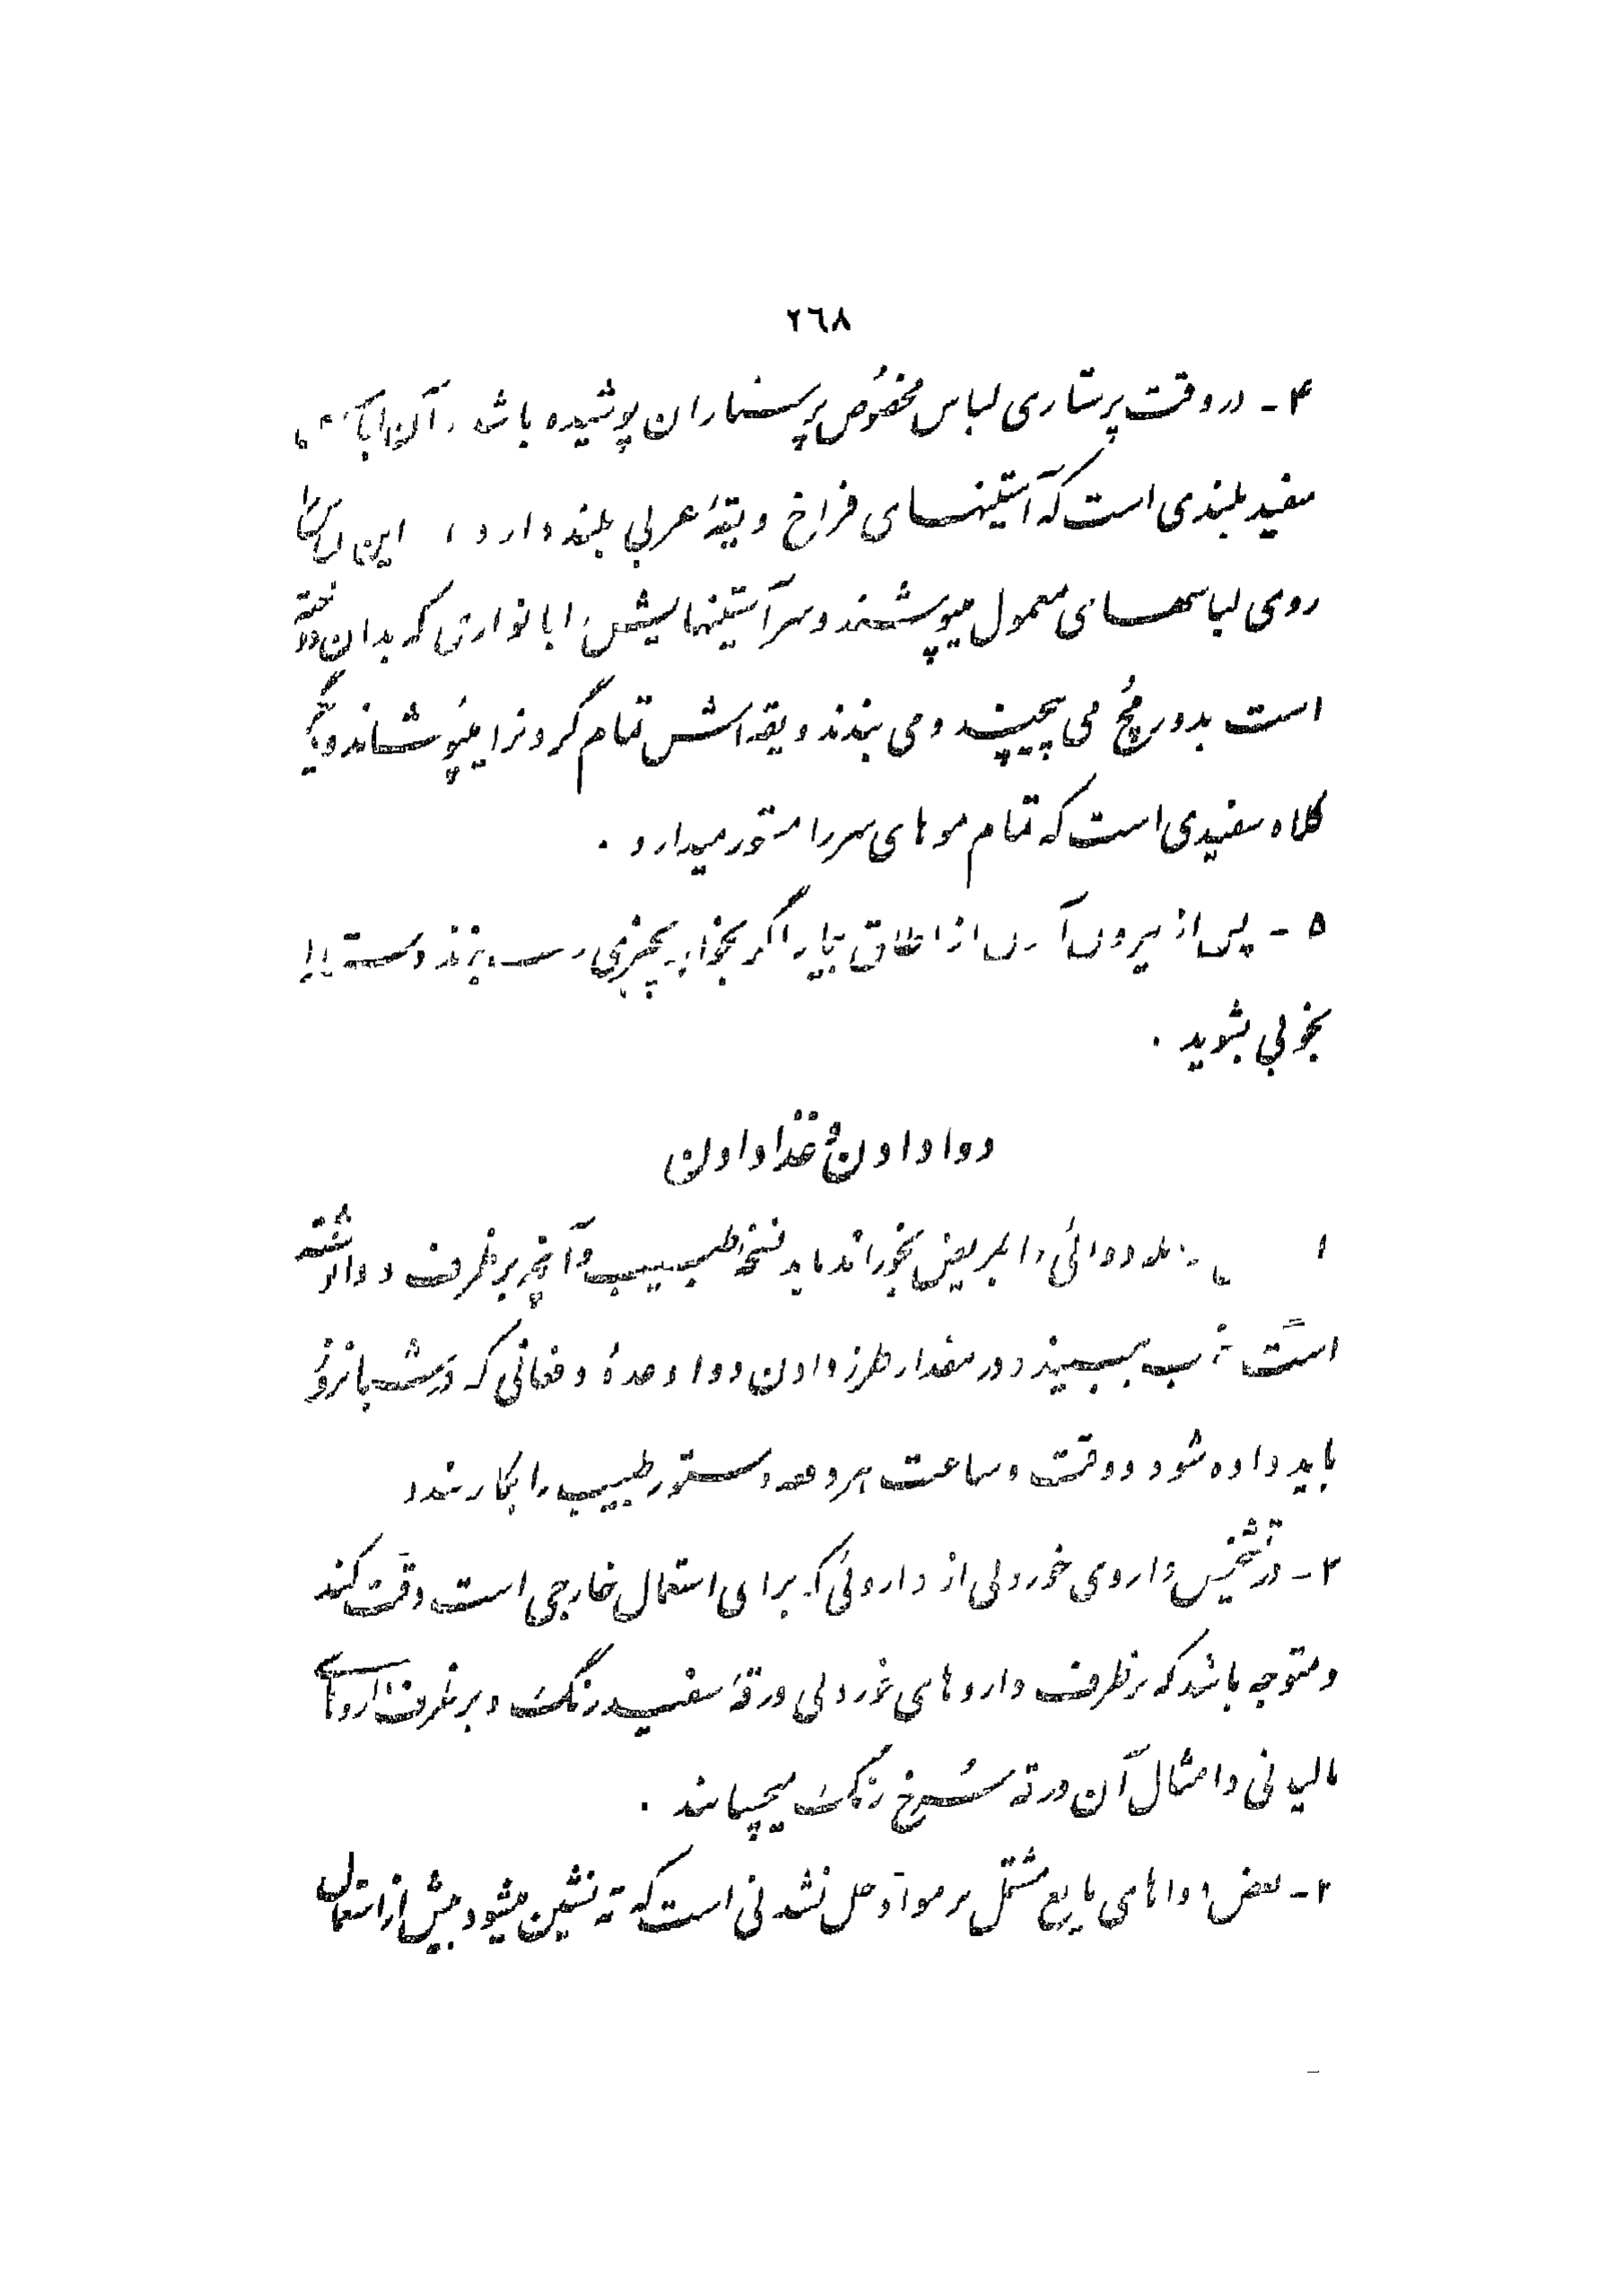 ٢٦٨
۴ - در وقت پرستاری لباس مخصوص پرستاران پوشیده باشد آن لباس
سفید بلندی است که آستینهای فراخ و یقهٔ عربی بلند دارد این لباس را
روی لباسهای معمول میپوشند و سر آستینهایش را با نواری که بدان دوخته
است بدور مچ می پیچند و می بندند و یقه اش تمام گردنرا میپوشاند و دیگر
کلاه سفیدی است که تمام موهای سر را مستور میدارد .
۵ - پس از بیرون آمدن از اطاق بیمار اگر بخواهد بچیزی دست بزند دست را
بخوبی بشوید .
دوا دادن و غذا دادن
۱ دوائی را بمریض بخوراند باید نسخهٔ طبیب و آنچه بر ظرف دوا نوشته
است خوب ببیند و در مقدار و طرز دادن دوا و عدهٔ دفعاتی که در شبانروز
باید داده شود و وقت و ساعت هر دفعه دستور طبیب را بکار بندد
۲ - در تشخیص داروی خوردنی از داروئی که برای استعمال خارجی است دقت کند
و متوجه باشد که بر ظرف داروهای خوردنی ورقهٔ سفید رنگ و بر ظرف داروهای
مالیدنی و امثال آن ورقه سرخ رنگ میچسبانند .
۳ - بعض دواهای مایع مشتمل بر مواد حل نشدنی است که ته نشین میشود پیش از استعمال